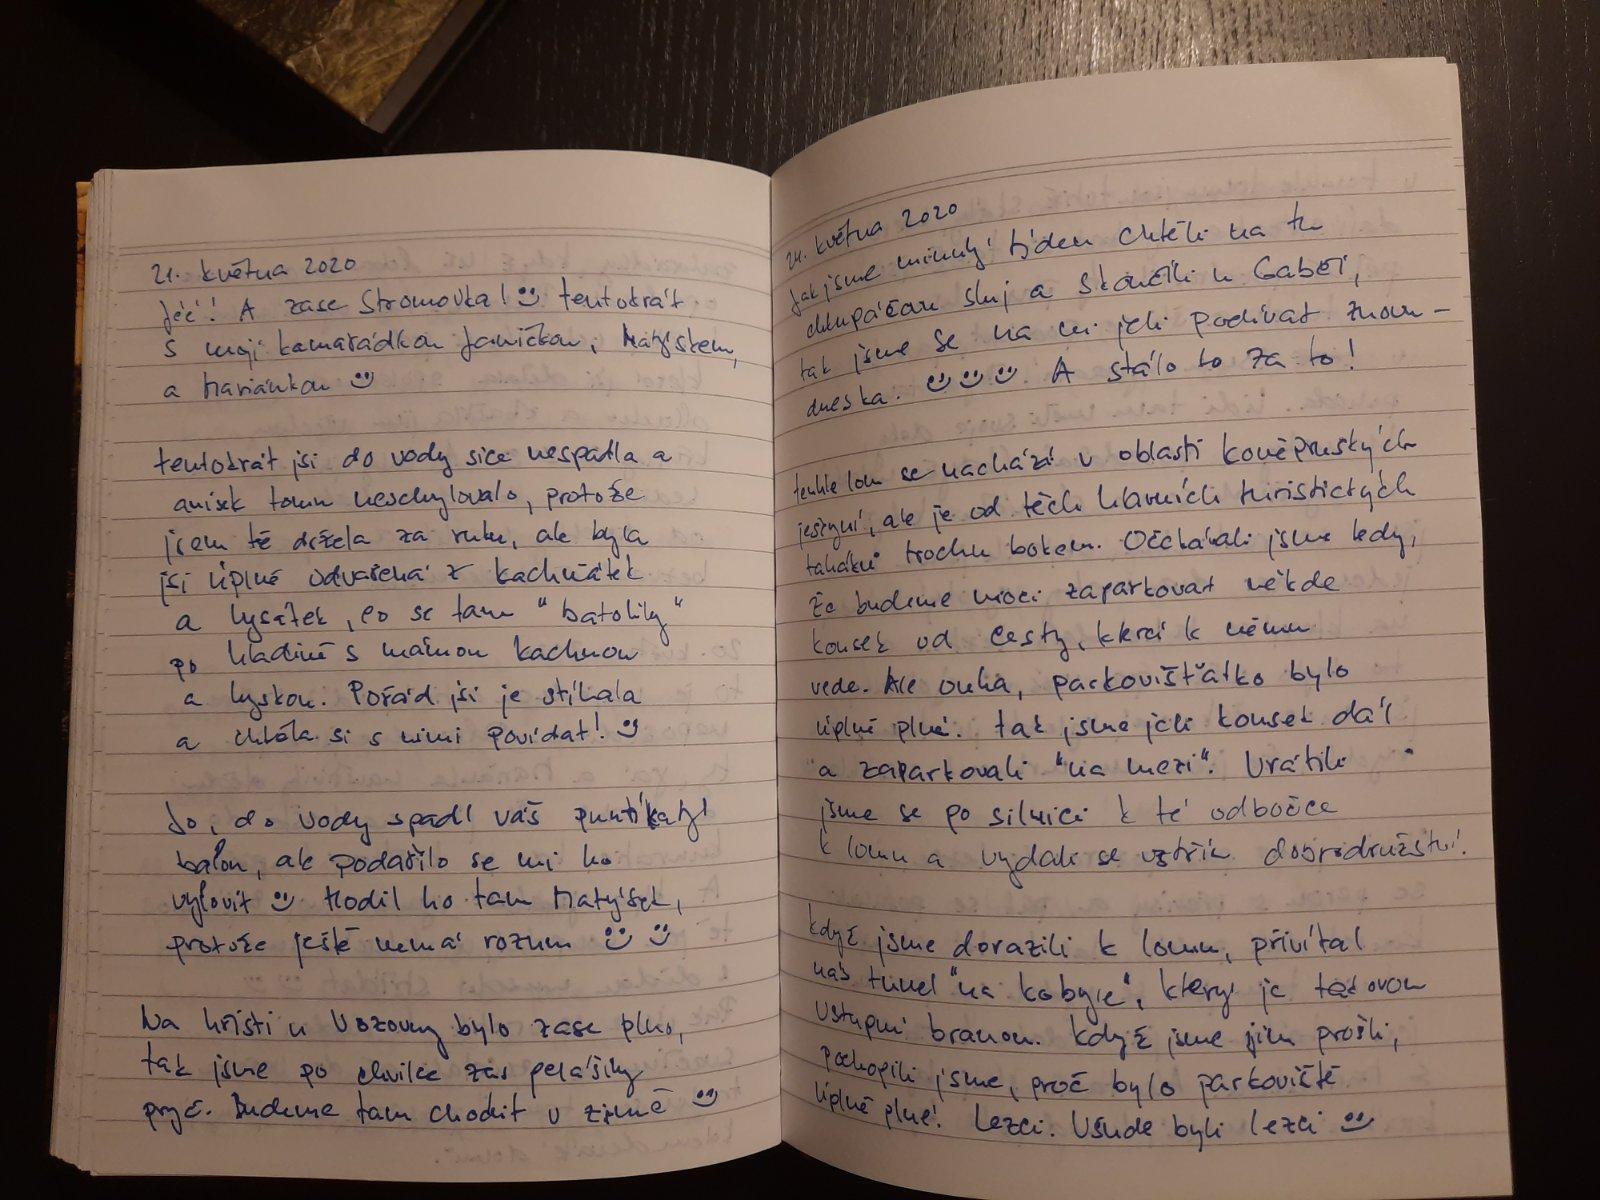 21. května 2020
Jéé! A zase Stromovka! 🙂 tentokrát
s mojí kamarádkou Janičkou, Matýskem,
a Mariánkou 🙂
tentokrát jsi do vody sice nespadla a
ani&#115;ek tomu neschylovalo, protože
jsem tě držela za ruku, ale byla
jsi úplně odvařená z kachňátek
a lysátek, co se tam "batolily"
po hladině s mámou kachnou
a lyskou. Pořád jsi je stíhala
a chtěla si s nimi povídat! 🙂
Jo, do vody spadl váš puntíkatý
balon, ale podařilo se mi ho
vylovit 🙂 Hodil ho tam Matýsek,
protože ještě nemá rozum 🙂 🙂
Na hřišti u Vozovny bylo zase plno,
tak jsme po chvilce zas pelášily
pryč. Budeme tam chodit v zimě 🙂
24. května 2020
Jak jsme minulý týden chtěli na tu
chlupáčovu sluj a skončili u Gabči,
tak jsme se na ni jeli podívat znovu –
dneska. 🙂 🙂 🙂 A stálo to za to!
tenhle lom se nachází v oblasti koněpruských
jeskyní, ale je od těch hlavních turistických
taháků trochu bokem. Očekávali jsme tedy,
že budeme moci zaparkovat někde
kousek od cesty, která k němu
vede. Ale ouha, parkovišťátko bylo
úplně plné. tak jsme jeli kousek dál
a zaparkovali "na mezi". Vrátili
jsme se po silnici k té odbočce
k lomu a vydali se vstříc dobrodružství.
když jsme dorazili k lomu, přivítal
nás tunel "na kobyle", který je takovou
vstupní branou. Když jsme jím prošli,
pochopili jsme, proč bylo parkoviště
úplně plné! Lezci. Všude byli lezci 🙂